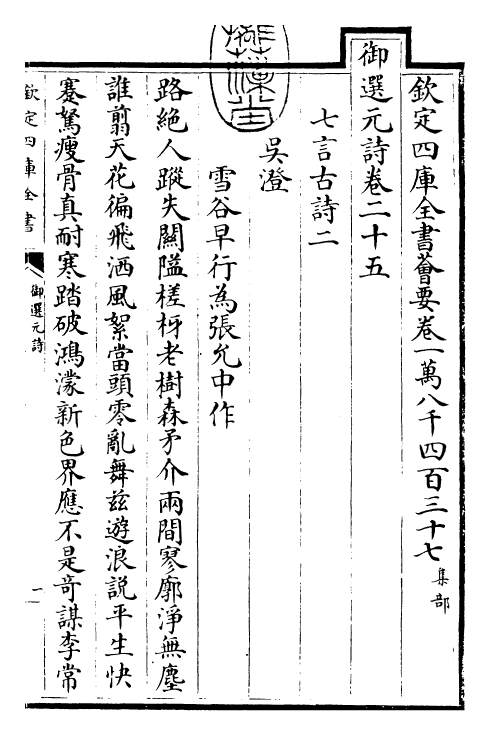 欽定四庫全書薈要卷一萬八千四百三十七 集部
御選元詩卷二十五
七言古詩二
吳澄
雪谷早行為張允中作
路絶人蹤失關隘槎枒老樹森矛介兩間寥廓淨無塵
誰翦天花徧飛洒風絮當頭零亂舞兹遊浪説平生快
蹇驽瘦骨真耐寒踏破鴻濛新色界應不是奇謀李常
欽定四庫全書
御選元詩
一
摛藻堂